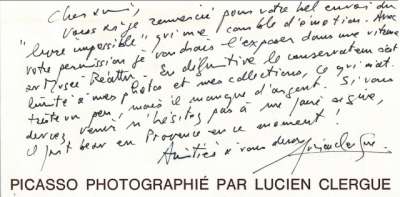 Cher ami,
vous ai-je remercié pour votre bel envoi du
"livre impossible" qui me comble d'émotion. Avec
votre permission je voudrais l'exposer dans une vitrine
au Musée Réattu. En définitive le conservateur s'est
limité à mes photos et mes collections, ce qui m'at-
triste un peu, mais il manque d'argent. Si vous
devez venir n'hésitez pas à me faire signe,
il fait beau en Provence en ce moment!
Amitiés à vous deux
Lucien Clergue.
PICASSO PHOTOGRAPHIÉ PAR LUCIEN CLERGUE